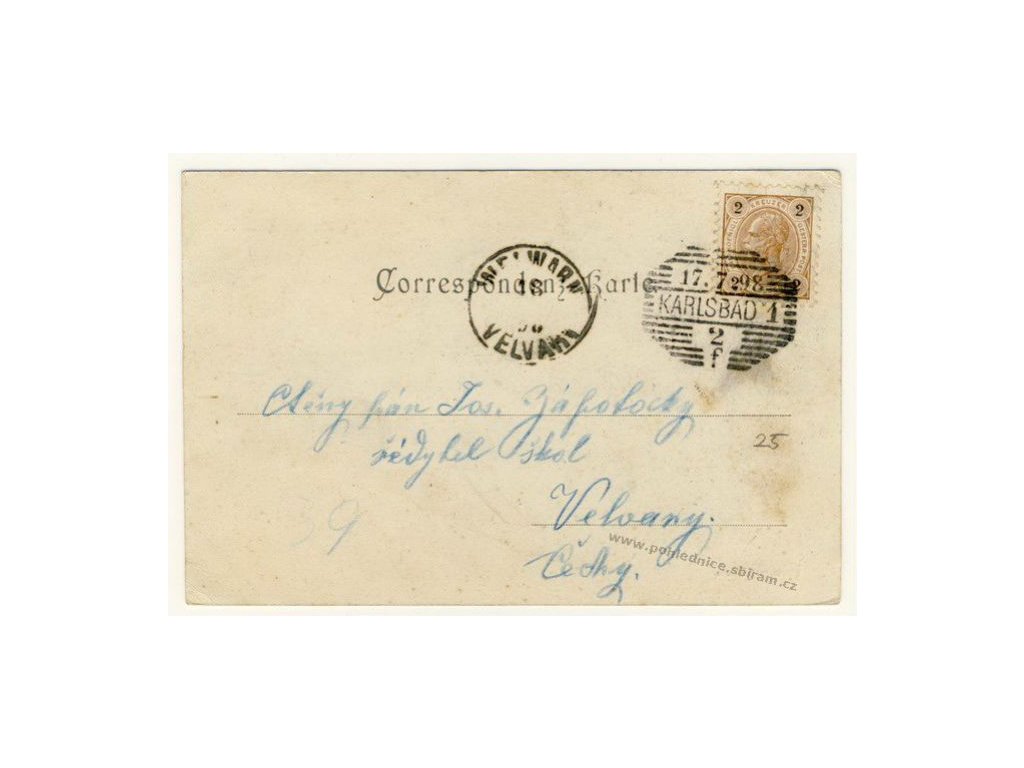 2 KREUZER 2
2
Correspondenz-Karte
WELWARN
18
98
VELVARY
17.7 98
KARLSBAD 1
2
f
Ctěný pán Jos. Zápotocký
řédytel škol
25
Velvary.
Čechy.
39
www.pohlednice.sbiram.cz